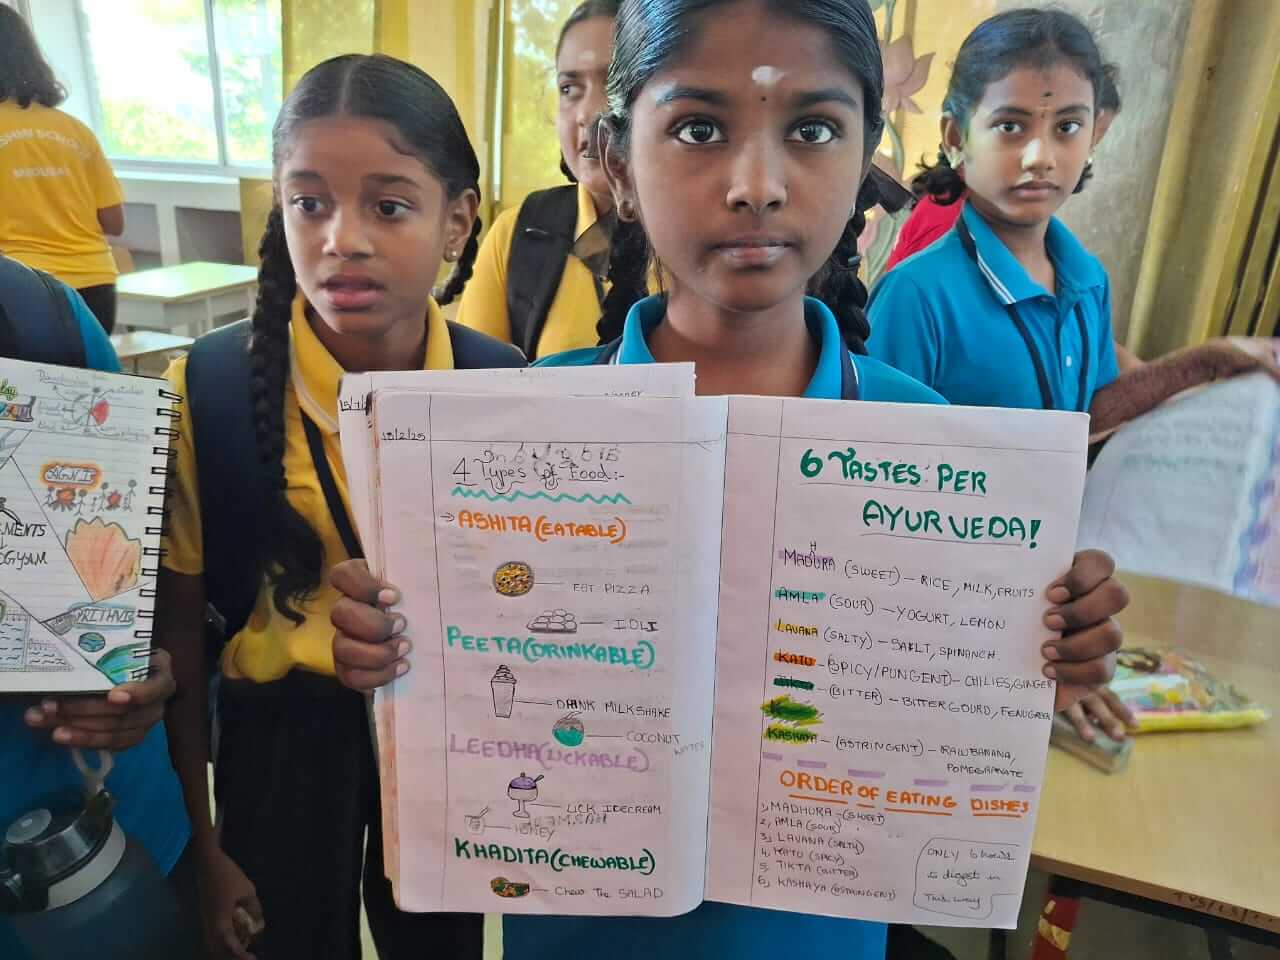 15/7/
13/2/25
4 Types of Food:-
→ ASHITA (EATABLE)
EAT PIZZA
IDLI
PEETA (DRINKABLE)
DRINK MILKSHAKE
COCONUT WATER
LEEDHA (LICKABLE)
LICK ICECREAM
HONEY
KHADITA (CHEWABLE)
Chew The SALAD
6 TASTES PER
AYURVEDA!
MADHURA (SWEET) – RICE, MILK, FRUITS
AMLA (SOUR) – YOGURT, LEMON
LAVANA (SALTY) – SALT, SPINANCH
KATU – (SPICY/PUNGENT) – CHILIES, GINGER
(BITTER) – BITTERGOURD, FENUGREEK
KASHAYA – (ASTRINGENT) – RAW BANANA,
POMEGRANATE
ORDER OF EATING DISHES
1, MADHURA – (SWEET)
2, AMLA (SOUR)
3, LAVANA (SALTY)
4, KATU (SPICY)
5, TIKTA (BITTER)
6, KASHAYA (ASTRINGENT)
ONLY 6 hours
to digest in
This way
AGNI
PRITHVI
MENTS
OGYAM
SCHOOL
MADURAI